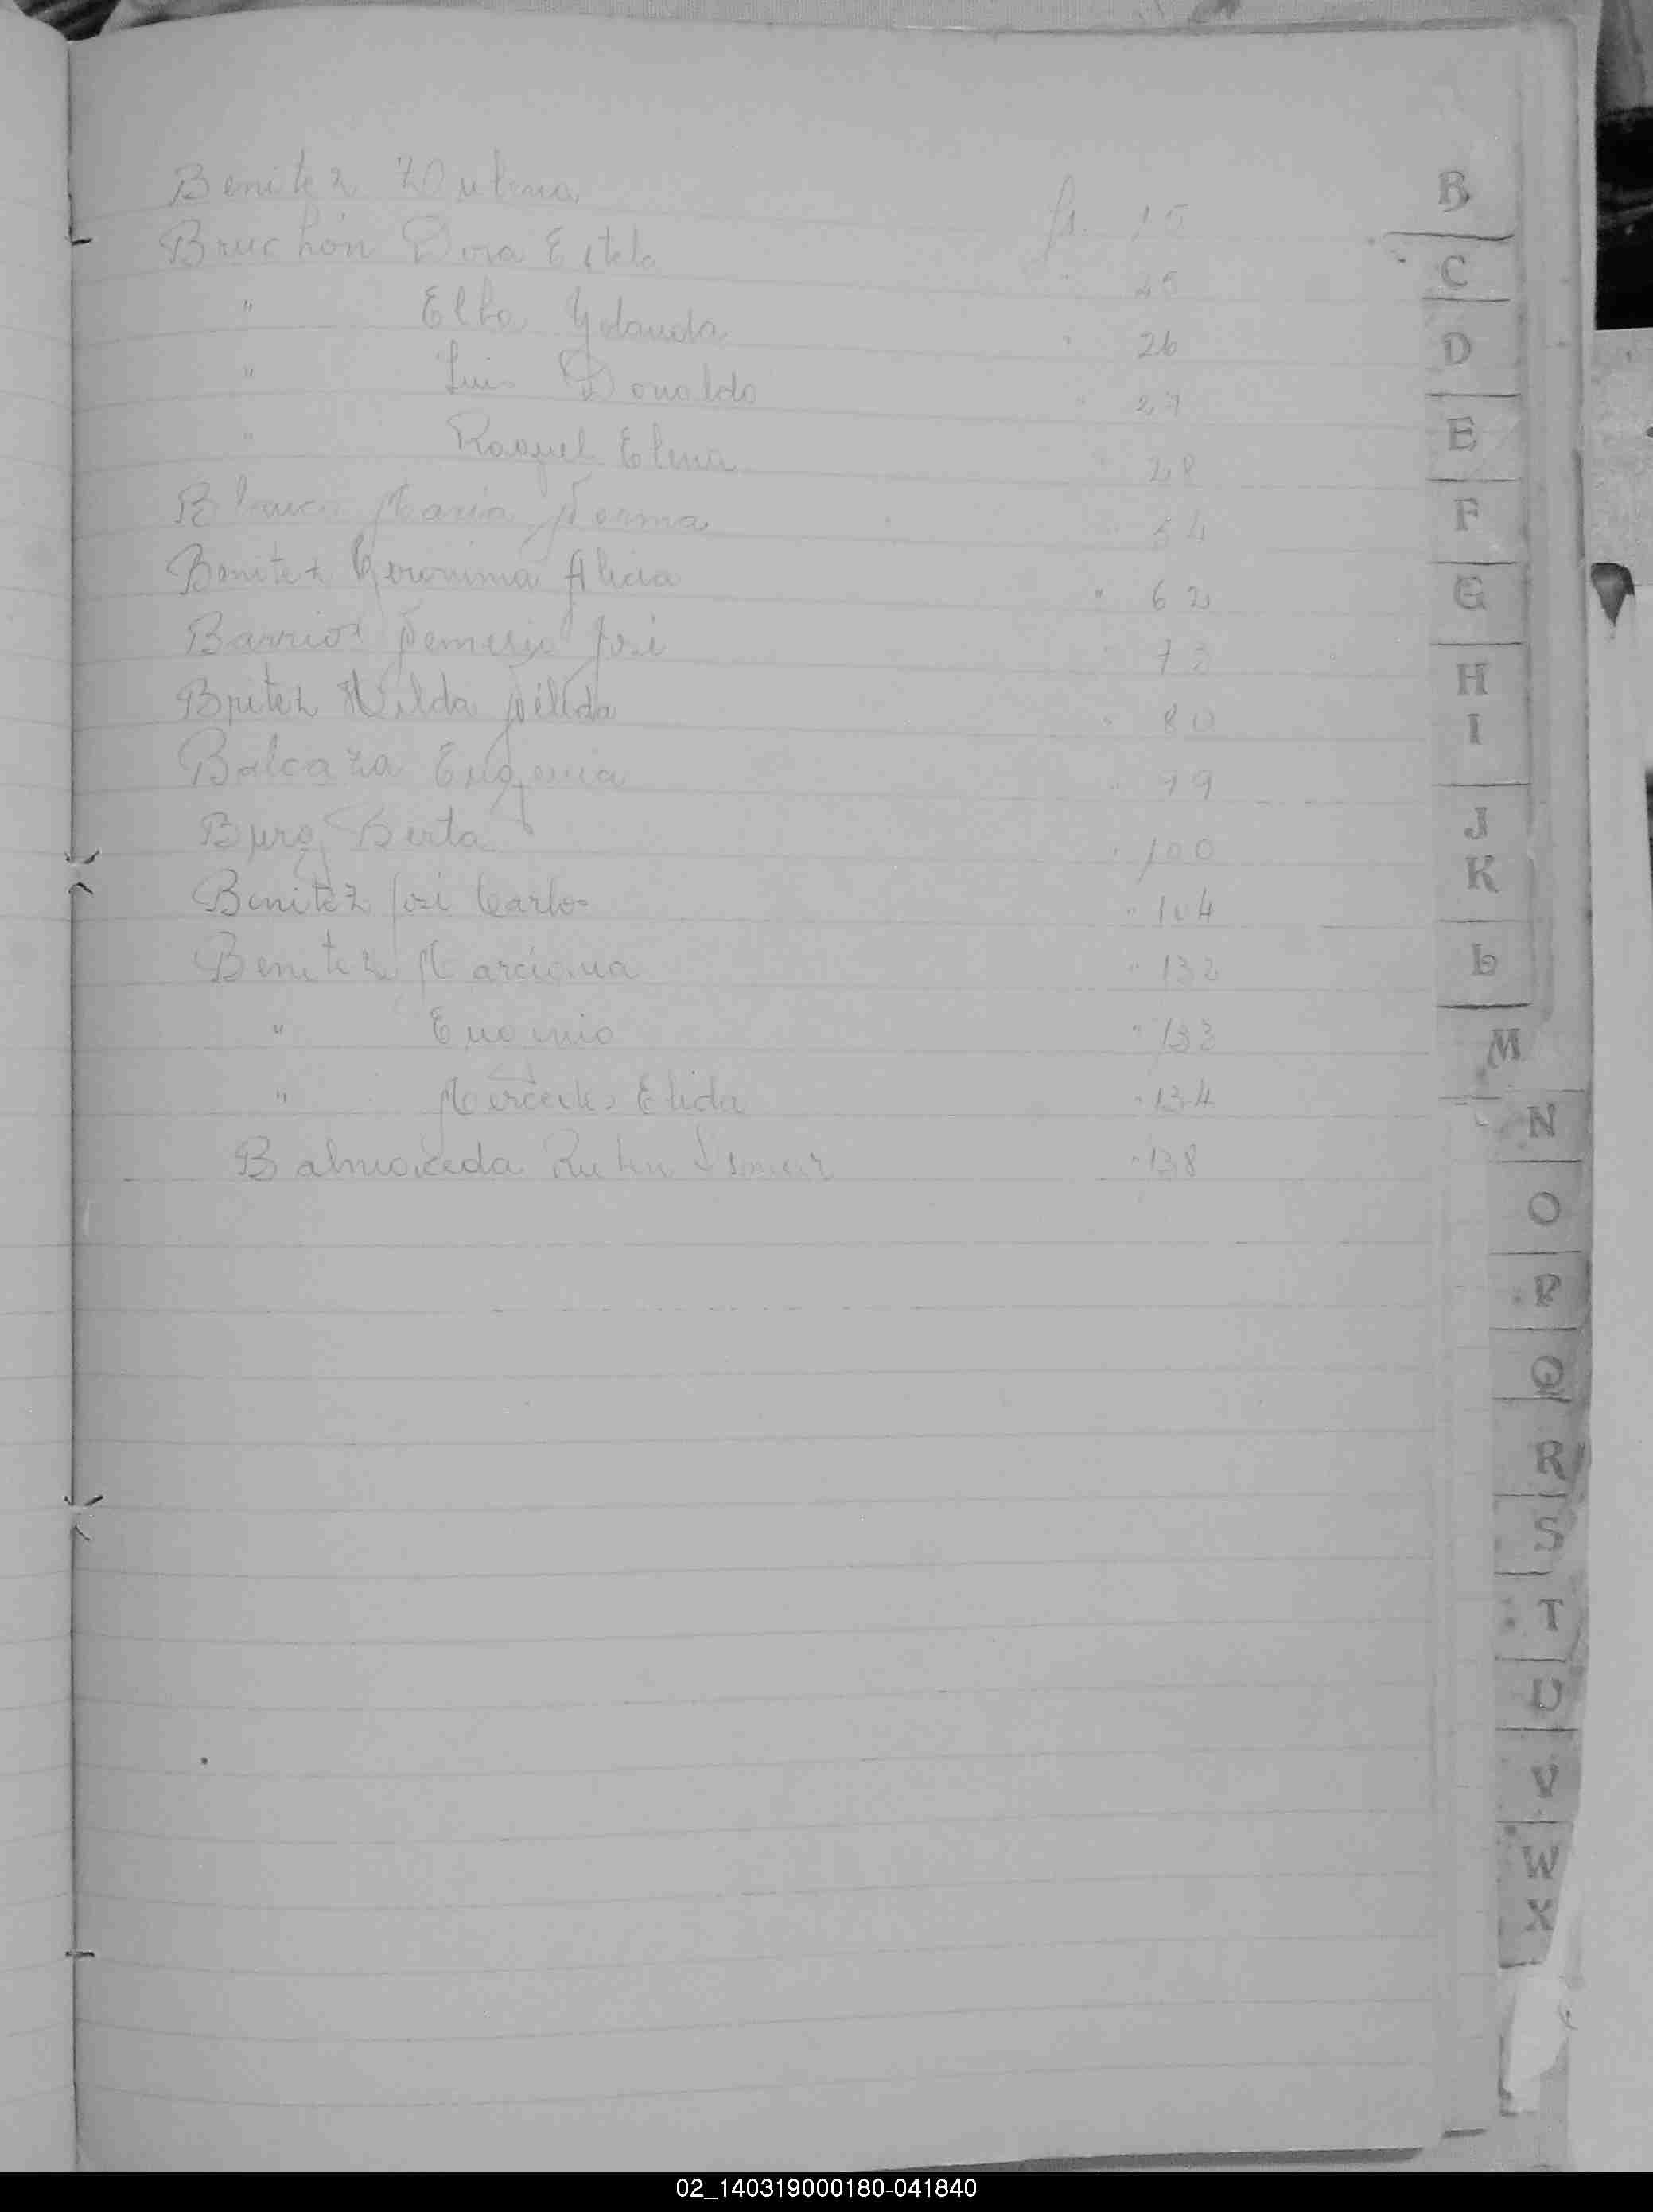 Benitez
Bruchón Dora Estela fs. 15
" Elba Yolanda " 26
" Luis Donaldo " 27
" Raquel Elena " 28
Blanco Maria Norma " 54
Benitez Geronima Alicia " 62
Barrios Nemesio José " 73
Britez Hilda Nélida " 80
Balcaza Eugenia " 79
Burg Berta " 100
Benitez José Carlos " 104
Benitez Marciana " 132
" Eugenio " 133
" Mercedes Elida " 134
Balmaceda Ruben " 138
B
C
D
E
F
G
H
I
J
K
L
M
N
O
P
Q
R
S
T
U
V
W
X
02_140319000180-041840